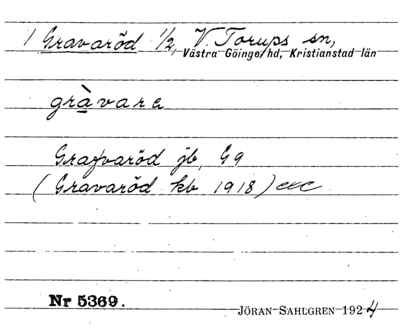 1 Gravaröd 1/2, V. Torups sn,
Västra Göinge hd, Kristianstad län
gràvarę
Grafvaröd jb, G9
(Gravaröd kb 1918) etc
Nr 5369.
JÖRAN SAHLGREN 1924